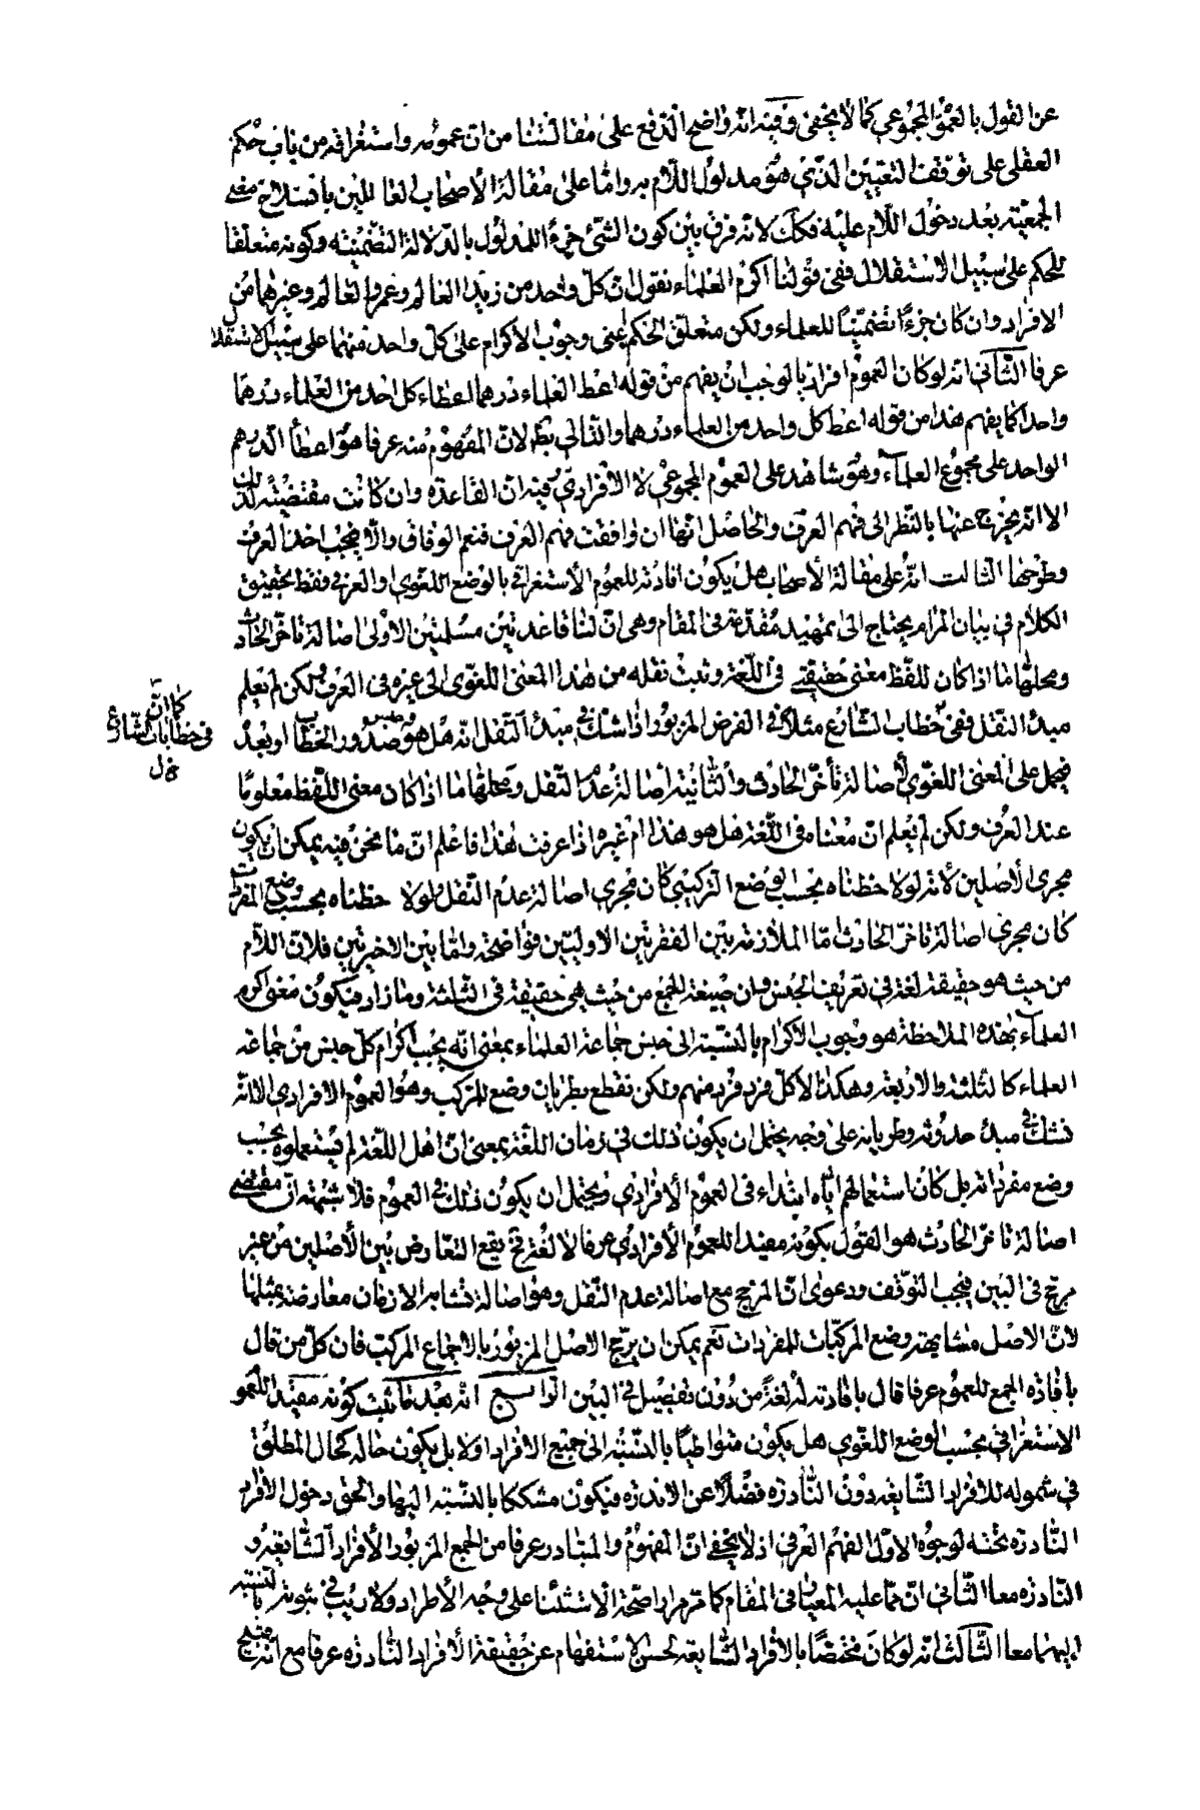 عن القول بالعموم المجموعي كما لا يخفى وفيه انه واضح الدفع على مقالتنا من ان عمومه واستغراقه من باب حكم
العقلي على توقف التعيين الذي هو مدلول اللام به واما على مقالة الأصحاب القائلين بانسلاخ معنى
الجمعية بعد دخول اللام عليه فكك لانه فرق بين كون الشئ جزء المدلول بالدلالة التضمنية وكونه متعلقا
للحكم على سبيل الاستقلال ففي قولنا اكرم العلماء نقول ان كل واحد من زيد العالم وعمرو العالم وغيرهما من
الافراد وان كان جزءا تضمنيا للعلماء ولكن متعلق الحكم يعنى وجوب الاكرام على كل واحد منهما على سبيل الاستقلال
عرفا الثاني انه لو كان العموم افراديا لوجب ان يفهم من قوله اعط العلماء درهما اعطاء كل احد من العلماء درهما
واحدا كما يفهم هذا من قوله اعط كل واحد من العلماء درهما والتالي بط لان المفهوم منه عرفا هو اعطاء الدرهم
الواحد على مجموع العلماء وهو شاهد على العموم المجموعي لا الأفرادي وفيه ان القاعدة وان كانت مقتضية لذلك
الا انه يخرج عنها بالنظر الى فهم العرف والحاصل انها ان وافقت فهم العرف فنعم الوفاق والا فيجب اخذ العرف
وطرحها الثالث انه على مقالة الأصحاب هل يكون افادته للعموم الأستغراقي بالوضع اللغوي او العرفي فقط تحقيق
الكلام في بيان المرام يحتاج الى تمهيد مقدمة في المقام وهى ان لنا قاعدتين مسلمتين الأولى اصالة تاخر الحادث
ومحلها ما اذا كان للفظ معنى حقيقي في اللغة وثبت نقله من هذا المعنى اللغوي الى غيره في العرف ولكن لم يعلم
مبدء النقل ففي خطاب الشارع مثلا في الفرض المزبور اذا شك في مبدء النقل انه هل هو صدور الخطاب او بعد
فيحمل على المعنى اللغوي لأصالة تأخر الحادث والثانية اصالة عدم النقل ومحلها ما اذا كان معنى اللفظ معلوما
عند العرف ولكن لم يعلم ان معناه في اللغة هل هو هذا ام غيره اذا عرفت هذا فاعلم ان ما نحن فيه يمكن ان يكون
مجرى الأصلين لأنه لو لاحظناه بحسب الوضع التركيبي كان مجرى اصالة عدم النقل ولو لاحظناه بحسب وضع المفردات
كان مجرى اصالة تاخر الحادث اما الملازمة بين الفقرتين الاوليين فواضحة واما بين الاخيرتين فلان اللام
من حيث هو حقيقة لغة في تعريف الجنس وان صيغة الجمع من حيث هي حقيقة في الثلثة وما زاد فيكون معنى اكرم
العلماء بهذه الملاحظة هو وجوب الاكرام بالنسبة الى جنس جماعة العلماء بمعنى انه يجب اكرام كل جنس من جماعة
العلماء كالثلثة والاربعة وهكذا لا كل فرد فرد منهم ولكن نقطع بطريان وضع للمركب وهو العموم الافرادي الا انه
نشك في مبدء حدوثه وطريانه على وجه يحتمل ان يكون ذلك في زمان اللغة بمعنى ان اهل اللغة لم يستعملوه بحسب
وضع مفرداته بل كان استعمالهم اياه ابتداء في العموم الأفرادي ويحتمل ان يكون ذلك في العموم فلا شبهة ان مقتضى
اصالة تاخر الحادث هو القول بكونه مفيدا للعموم الأفرادي عرفا لا لغة فح يقع التعارض بين الأصلين من غير
مرجح في البين فيجب التوقف ودعوى ان المرجح مع اصالة عدم النقل وهو اصالة تشابه الازمان معارضة بمثلها
لان الاصل مشابهة وضع المركبات للمفردات نعم يمكن ان يرجح الاصل المزبور بالاجماع المركب فان كل من قال
بافادة الجمع للعموم عرفا قال بافادته له لغة من دون تفصيل في البين الرابع انه بعد ما ثبت كونه مفيدا للعموم
الاستغراقي بحسب الوضع اللغوي هل يكون متواطيا بالنسبة الى جميع الافراد او لا بل يكون حاله كحال المطلق
في شموله للافراد الشايعة دون النادرة فضلا عن الاندرة فيكون مشككا بالنسبة اليها والحق دخول الافراد
النادرة تحته لوجوه الاول الفهم العرفي اذ لا يخفى ان المفهوم والمتبادر عرفا من الجمع المزبور الأفراد الشايعة و
النادرة معا الثاني ان مما عليه المعيار في المقام كما مر مرارا صحة الاستثناء على وجه الأطراد ولا ريب في ثبوته بالنسبة
اليهما معا الثالث انه لو كان مختصا بالافراد الشايعة لحسن الاستفهام عن حقيقة الأفراد النادرة عرفا مع انه قبيح
كما ان
في خطابات الشارع